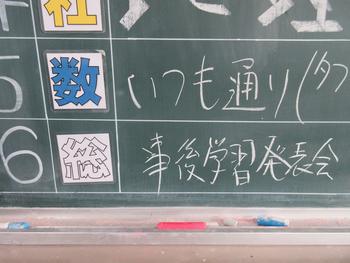 社
5 数 いつも通り(タブ
6 総 事後学習発表会